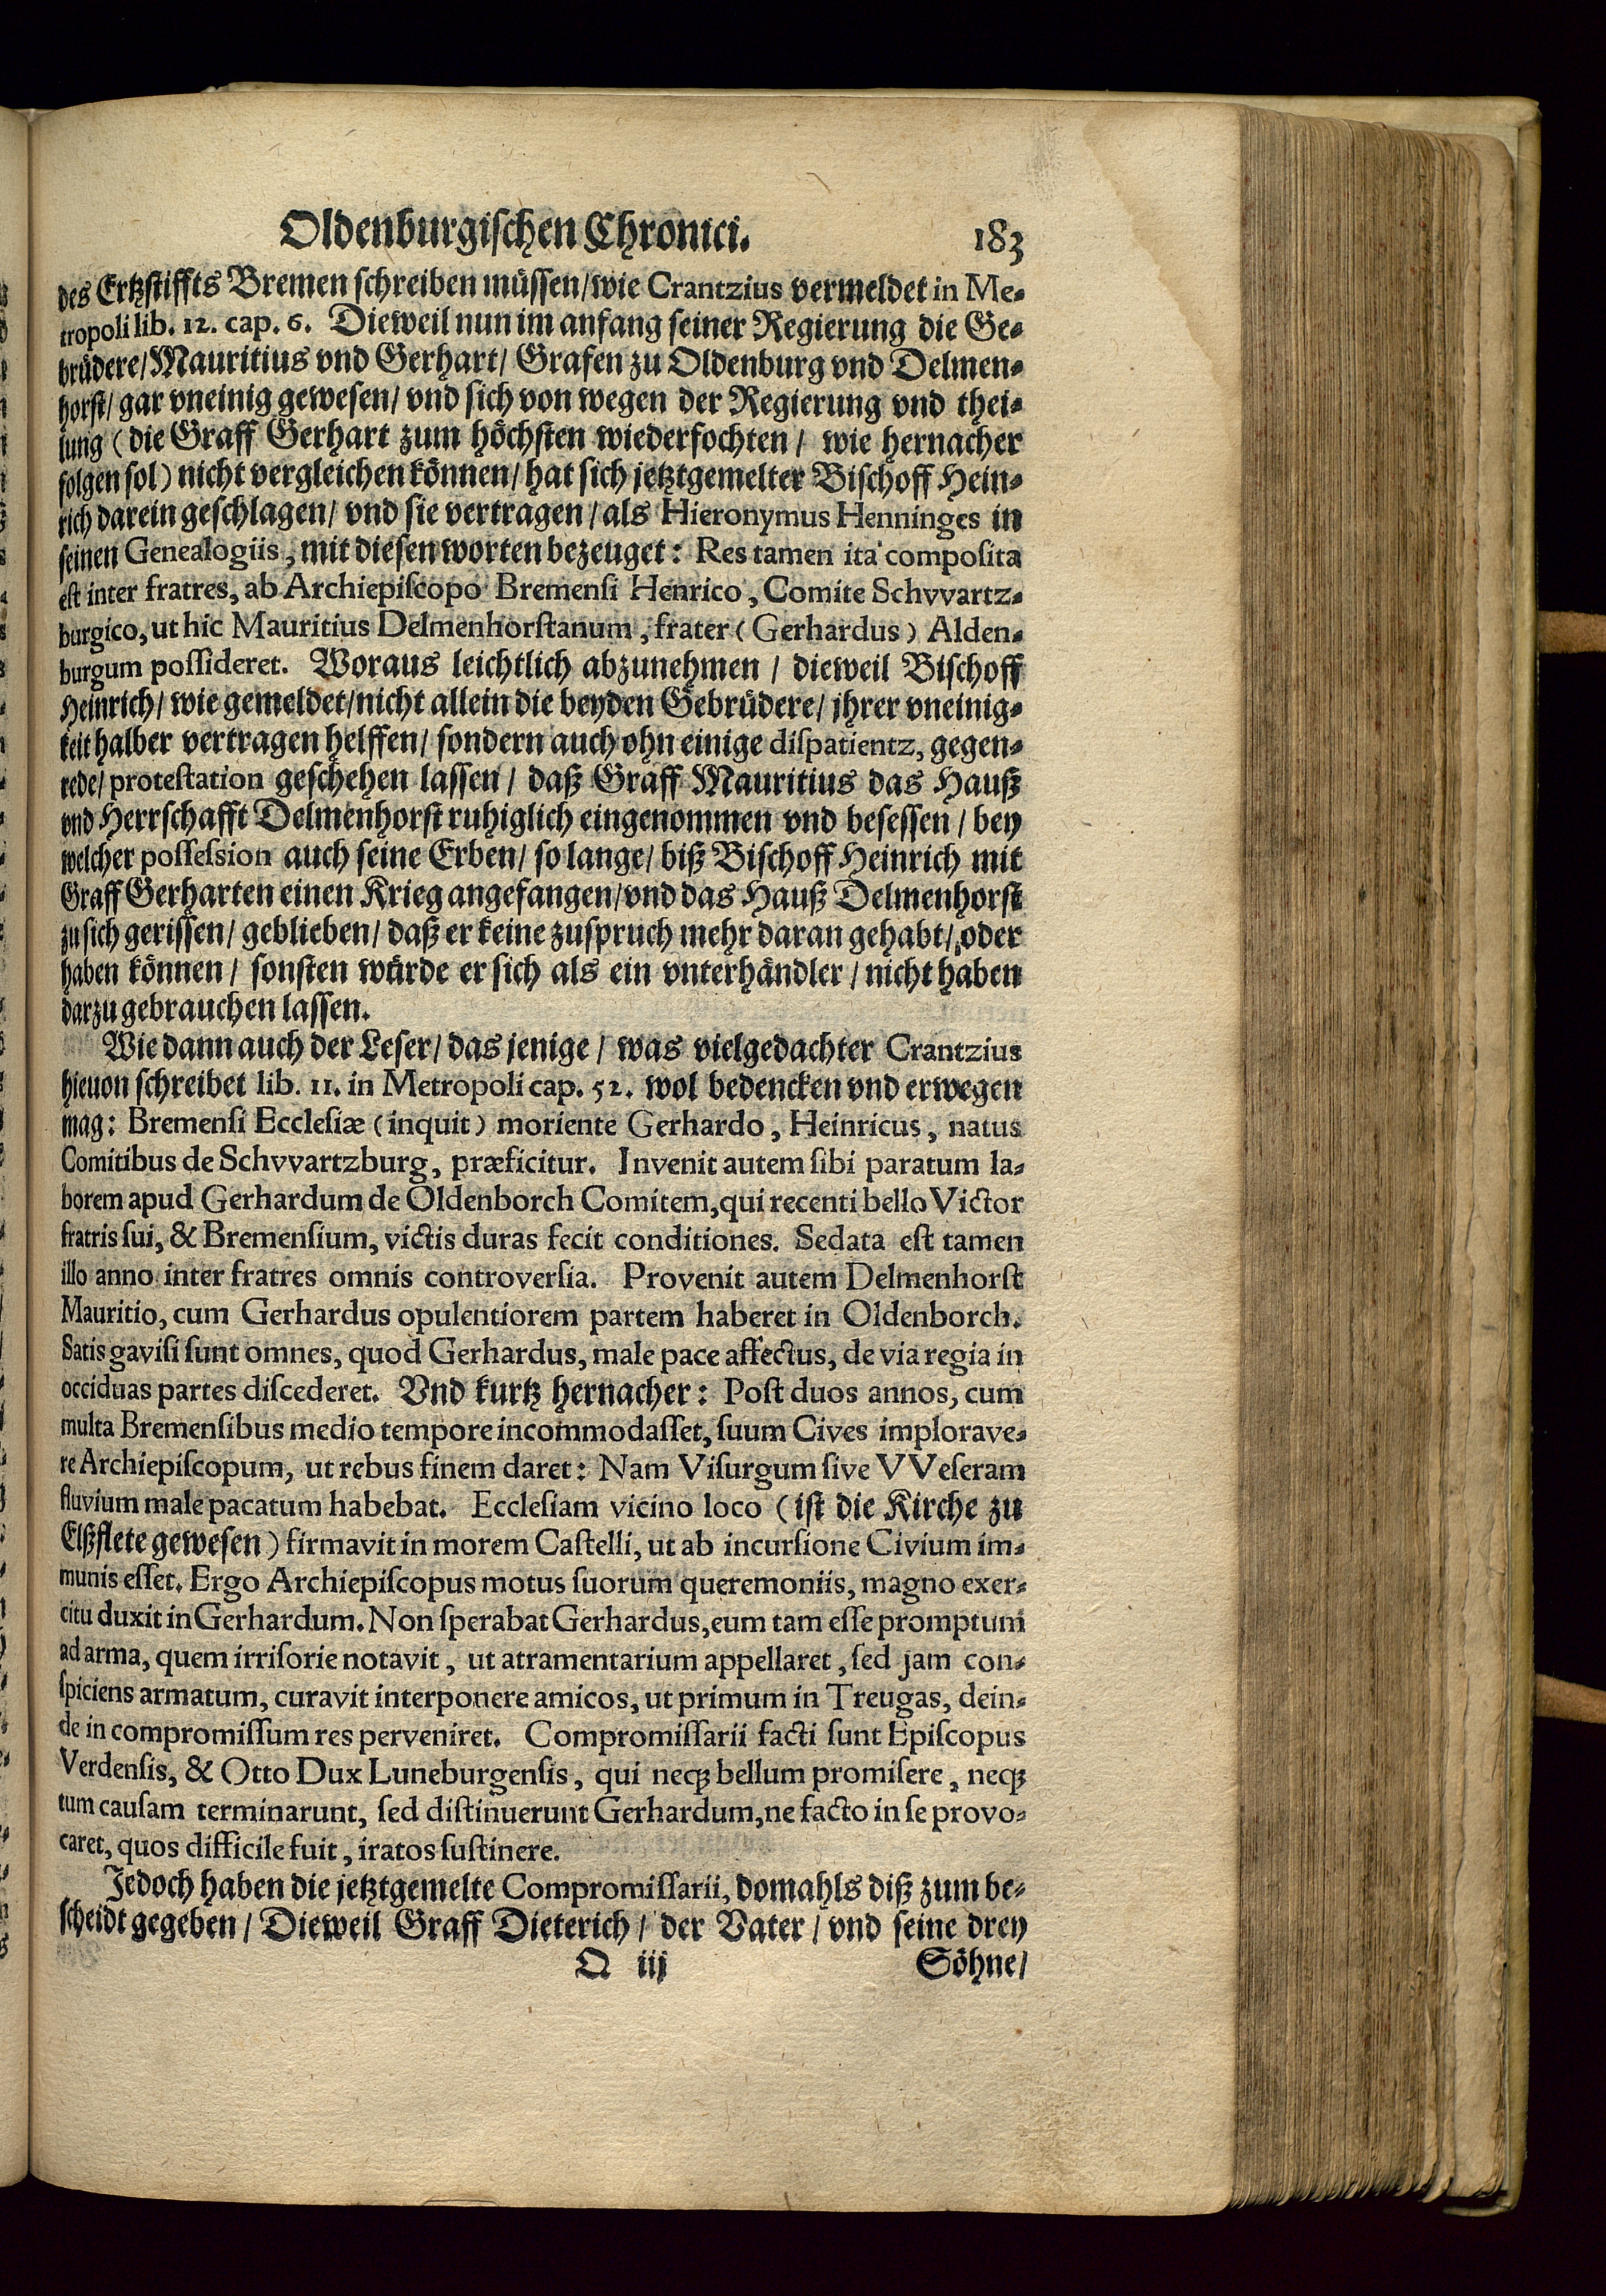 Oldenburgischen Chronici. 183
des Ertzstiffts Bremen schreiben müssen/wie Crantzius vermeldet in Me-
tropoli lib. 12. cap. 6. Dieweil nun im anfang seiner Regierung die Ge-
brüdere/Mauritius vnd Gerhart/ Grafen zu Oldenburg vnd Delmen-
horst/ gar vneinig gewesen/ vnd sich von wegen der Regierung vnd thei-
lung (die Graff Gerhart zum höchsten wiederfochten/ wie hernacher
folgen sol) nicht vergleichen können/ hat sich jetztgemelter Bischoff Hein-
rich darein geschlagen/ vnd sie vertragen/ als Hieronymus Henninges in
seinen Genealogiis, mit diesen worten bezeuget: Res tamen ita composita
est inter fratres, ab Archiepiscopo Bremensi Henrico, Comite Schvvartz-
burgico, ut hic Mauritius Delmenhorstanum, frater (Gerhardus) Alden-
burgum possideret. Woraus leichtlich abzunehmen/ dieweil Bischoff
Heinrich/ wie gemeldet/nicht allein die beyden Gebrüdere/ jhrer vneinig-
keit halber vertragen helffen/ sondern auch ohn einige dispatientz, gegen-
rede/ protestation geschehen lassen/ daß Graff Mauritius das Hauß
vnd Herrschafft Delmenhorst ruhiglich eingenommen vnd besessen/ bey
welcher possession auch seine Erben/ so lange/ biß Bischoff Heinrich mit
Graff Gerharten einen Krieg angefangen/vnd das Hauß Delmenhorst
zu sich gerissen/ geblieben/ daß er keine zuspruch mehr daran gehabt/ oder
haben können/ sonsten würde er sich als ein vnterhändler/ nicht haben
darzu gebrauchen lassen.
Wie dann auch der Leser/ das jenige/ was vielgedachter Crantzius
hieuon schreibet lib. 11. in Metropoli cap. 52. wol bedencken vnd erwegen
mag: Bremensi Ecclesiæ (inquit) moriente Gerhardo, Heinricus, natus
Comitibus de Schvvartzburg, præficitur. Invenit autem sibi paratum la-
borem apud Gerhardum de Oldenborch Comitem, qui recenti bello Victor
fratris sui, & Bremensium, victis duras fecit conditiones. Sedata est tamen
illo anno inter fratres omnis controversia. Provenit autem Delmenhorst
Mauritio, cum Gerhardus opulentiorem partem haberet in Oldenborch.
Satis gavisi sunt omnes, quod Gerhardus, male pace affectus, de via regia in
occiduas partes discederet. Vnd kurtz hernacher: Post duos annos, cum
multa Bremensibus medio tempore incommodasset, suum Cives implorave-
re Archiepiscopum, ut rebus finem daret: Nam Visurgum sive VVeseram
fluvium male pacatum habebat. Ecclesiam vicino loco (ist die Kirche zu
Elßflete gewesen) firmavit in morem Castelli, ut ab incursione Civium im-
munis esset. Ergo Archiepiscopus motus suorum queremoniis, magno exer-
citu duxit in Gerhardum. Non sperabat Gerhardus, eum tam esse promptum
ad arma, quem irrisorie notavit, ut atramentarium appellaret, sed jam con-
spiciens armatum, curavit interponere amicos, ut primum in Treugas, dein-
de in compromissum res perveniret. Compromissarii facti sunt Episcopus
Verdensis, & Otto Dux Luneburgensis, qui neqꝫ bellum promisere, neqꝫ
tum causam terminarunt, sed distinuerunt Gerhardum, ne facto in se provo-
caret, quos difficile fuit, iratos sustinere.
Jedoch haben die jetztgemelte Compromissarii, domahls diß zum be-
scheidt gegeben/ Dieweil Graff Dieterich/ der Vater/ vnd seine drey
Q iij Söhne/